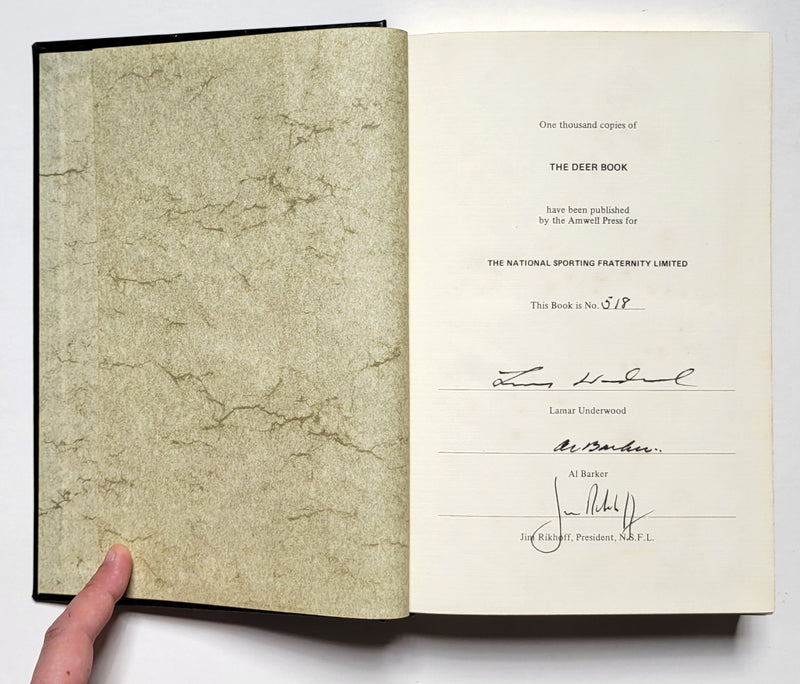 One thousand copies of
THE DEER BOOK
have been published
by the Amwell Press for
THE NATIONAL SPORTING FRATERNITY LIMITED
This Book is No. 518
Lamar Underwood
Al Barker
Al Barker
Jim Rikhoff
Jim Rikhoff, President, N.S.F.L.